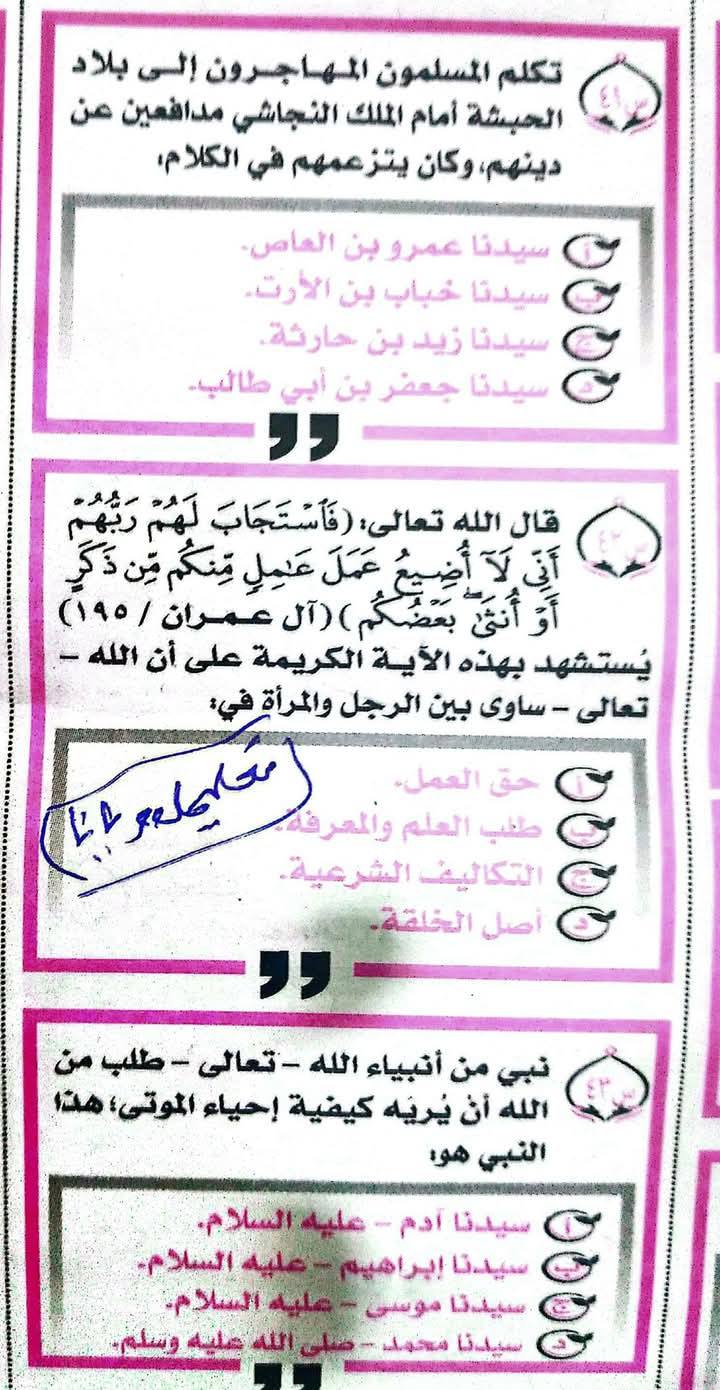 س٤١
تكلم المسلمون المهاجرون إلى بلاد
الحبشة أمام الملك النجاشي مدافعين عن
دينهم، وكان يتزعمهم في الكلام:
أ سيدنا عمرو بن العاص.
ب سيدنا خباب بن الأرت.
ج سيدنا زيد بن حارثة.
د سيدنا جعفر بن أبي طالب.
س٤٢
قال الله تعالى: (فَٱسْتَجَابَ لَهُمْ رَبُّهُمْ
أَنِّى لَآ أُضِيعُ عَمَلَ عَـٰمِلٍ مِّنكُم مِّن ذَكَرٍ
أَوْ أُنثَىٰ ۖ بَعْضُكُم) (آل عمران / ١٩٥)
يُستشهد بهذه الآية الكريمة على أن الله –
تعالى – ساوى بين الرجل والمرأة في:
أ حق العمل.
ب طلب العلم والمعرفة.
ج التكاليف الشرعية.
د أصل الخلقة.
س٤٣
نبي من أنبياء الله – تعالى – طلب من
الله أن يُريَه كيفية إحياء الموتى؛ هذا
النبي هو:
أ سيدنا آدم – عليه السلام.
ب سيدنا إبراهيم – عليه السلام.
ج سيدنا موسى – عليه السلام.
د سيدنا محمد – صلى الله عليه وسلم.